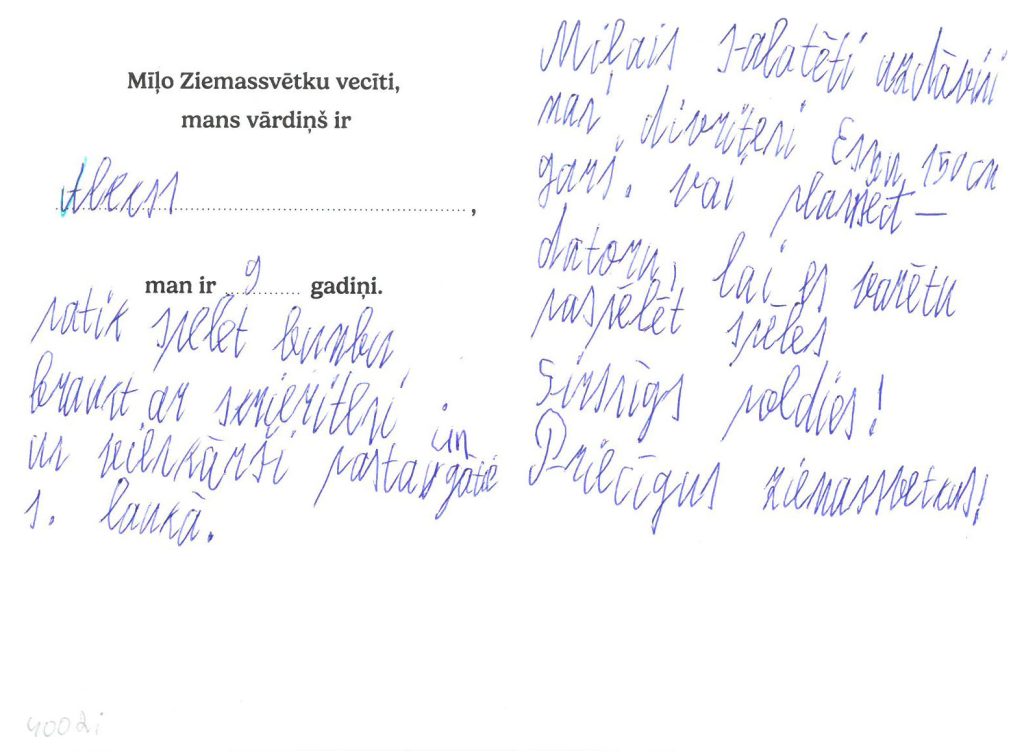 Mīļo Ziemassvētku vecīti,
mans vārdiņš ir
Alekss,
man ir 9 gadiņi.
patik spēlēt bumbu
braukt ar skrieritteni.
un vienkārši pastaigātie
s. laukā.
Miļais salatēti uzdāvini
man divriteni Esmu 150 cm
garš. vai planšet-
datoru, lai es varētu
paspēlēt spēles
Sirsnīgs poldies!
Priecīgus ziemassvetkus!
4002i